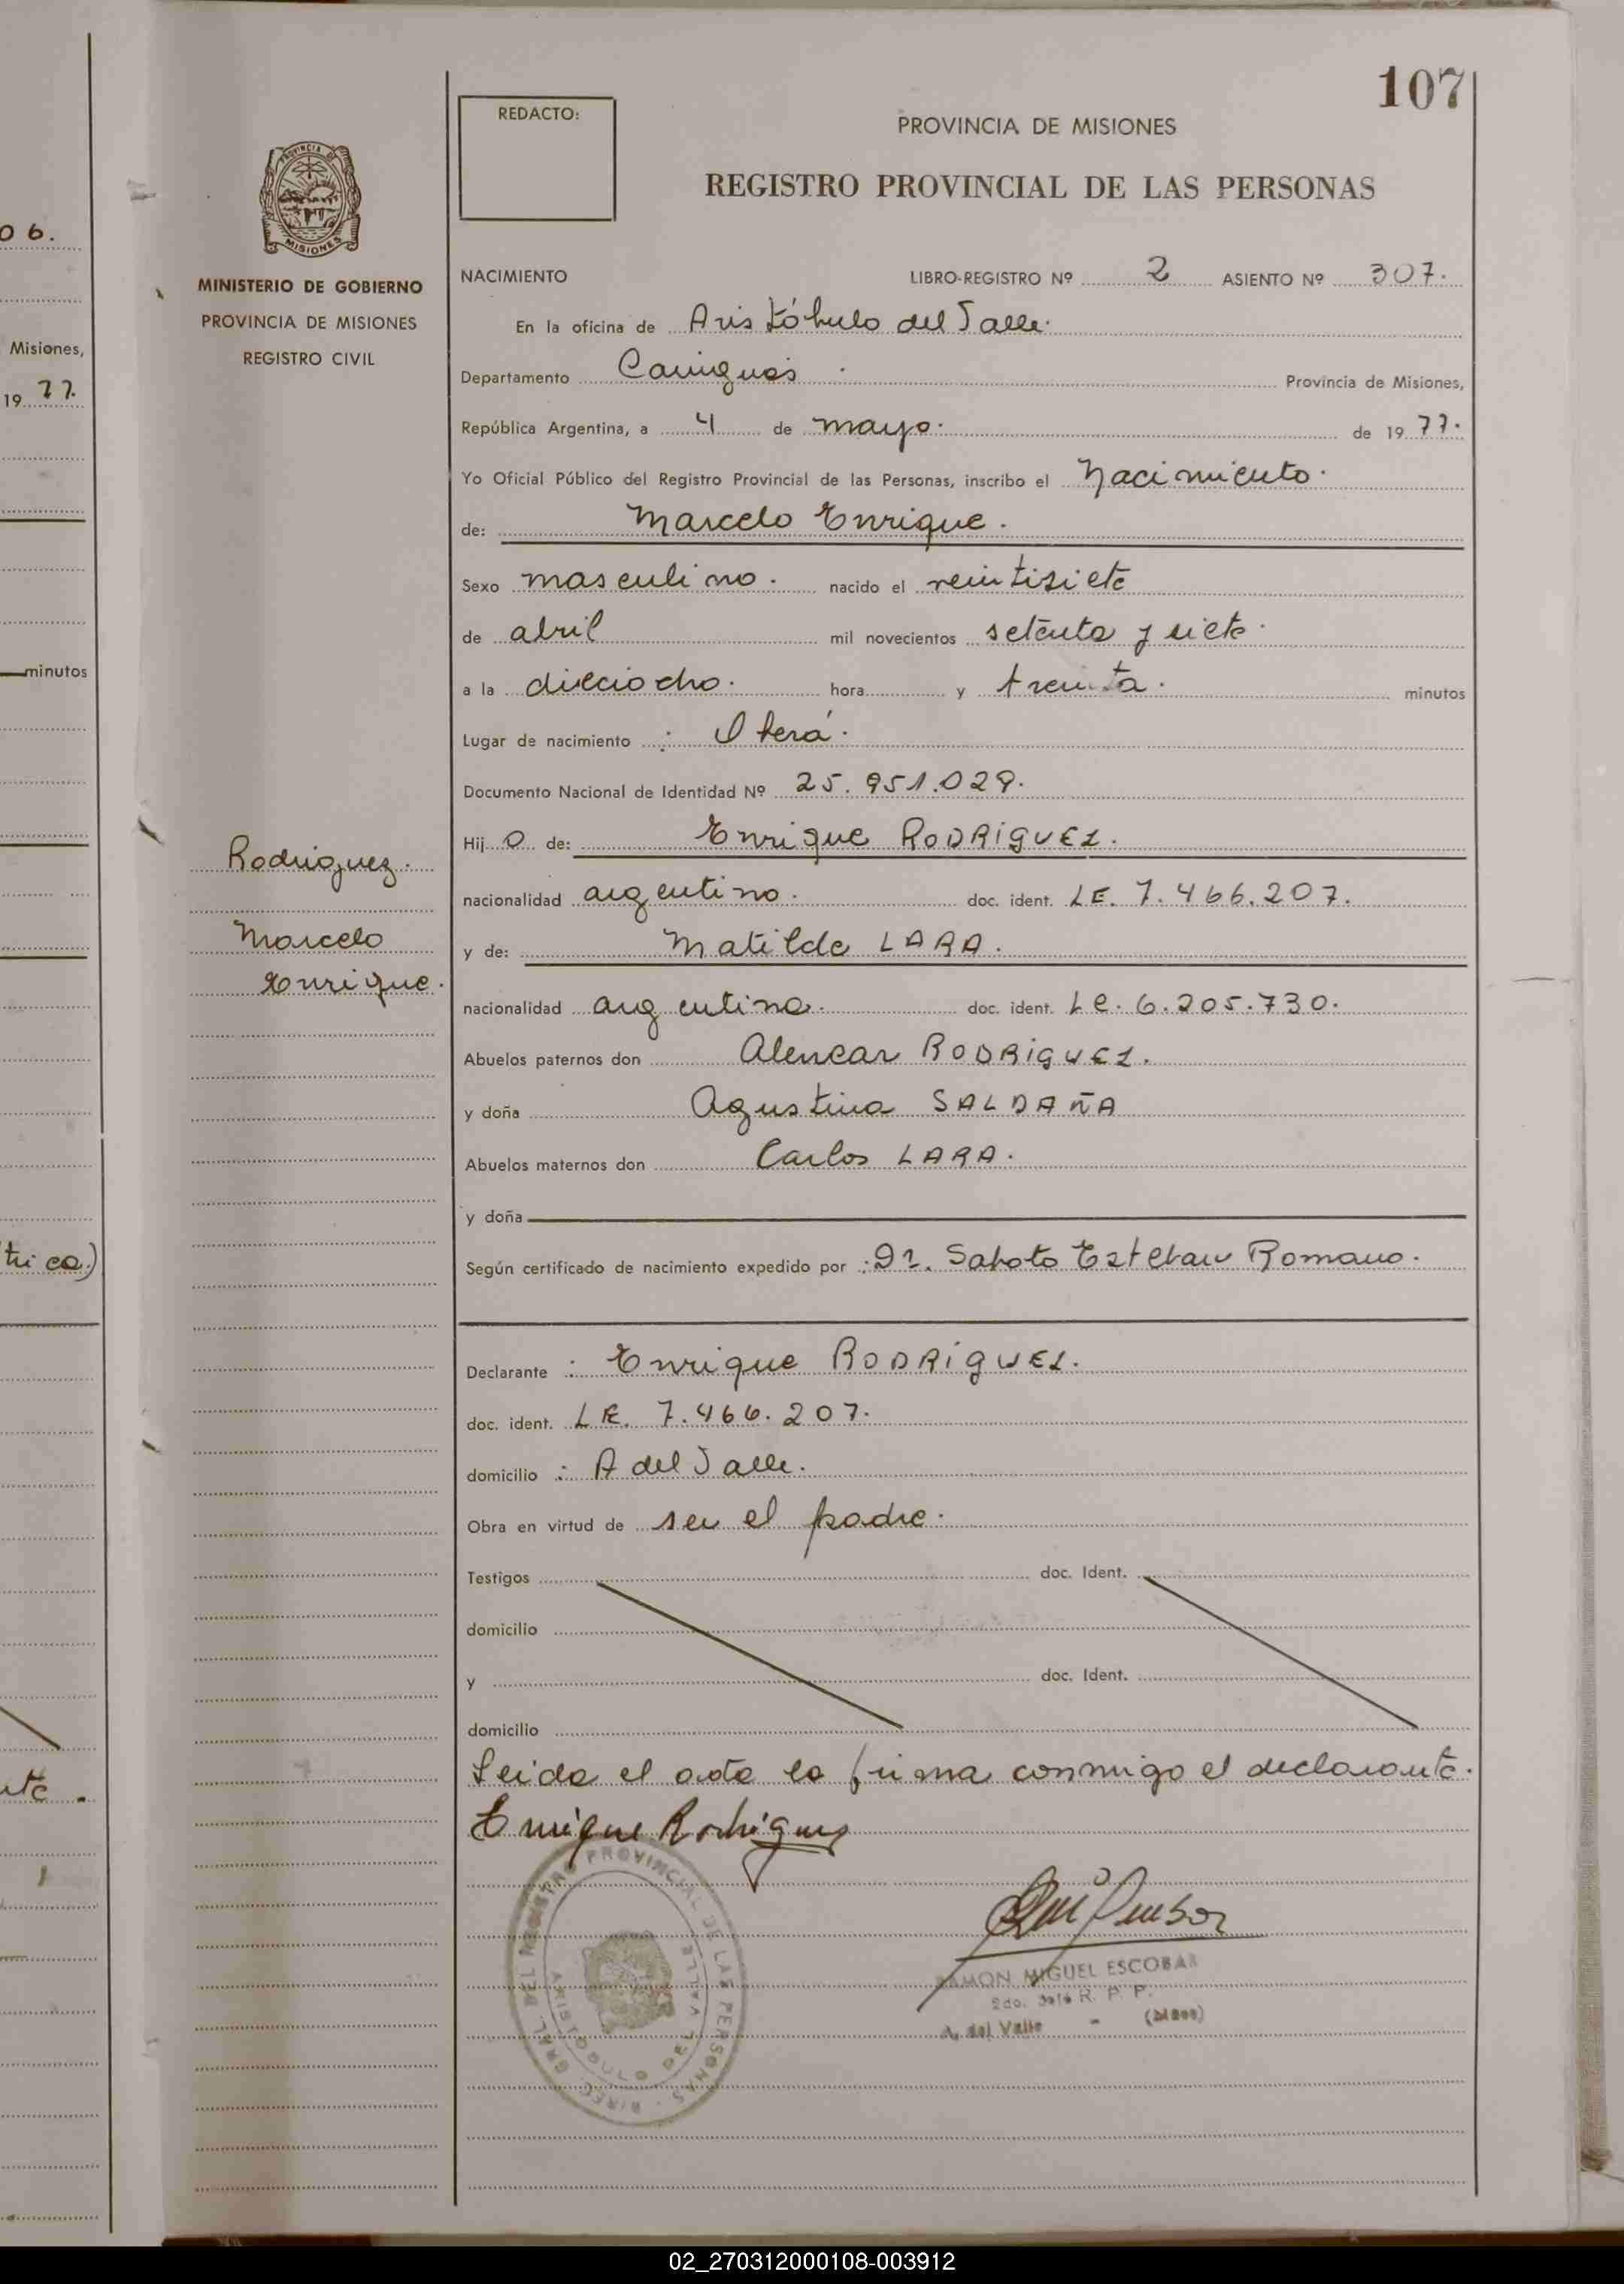 107
REDACTO:
PROVINCIA DE MISIONES
REGISTRO PROVINCIAL DE LAS PERSONAS
PROVINCIA DE
MISIONES
MINISTERIO DE GOBIERNO
PROVINCIA DE MISIONES
REGISTRO CIVIL
06.
Misiones,
1977.
minutos
NACIMIENTO LIBRO-REGISTRO Nº 2 ASIENTO Nº 307.
En la oficina de Aristóbulo del Valle.
Departamento Cainguás. Provincia de Misiones,
República Argentina, a 4 de mayo. de 1977.
Yo Oficial Público del Registro Provincial de las Personas, inscribo el Nacimiento.
de: Marcelo Enrique.
Sexo masculino. nacido el veintisiete
de abril mil novecientos setenta y siete.
a la dieciocho. hora y treinta. minutos
Lugar de nacimiento : Oberá.
Documento Nacional de Identidad Nº 25.951.029.
Hijo de: Enrique RODRíGUEZ.
Rodriguez.
nacionalidad argentino. doc. ident. LE. 7.466.207.
Marcelo
y de: Matilde LARA.
Enrique.
nacionalidad argentina. doc. ident. LC. 6.205.730.
Abuelos paternos don Alencar RODRiGUEZ.
y doña Agustina SALDAÑA
Abuelos maternos don Carlos LARA.
y doña
Según certificado de nacimiento expedido por : Dr. Saboto Esteban Romano.
Declarante : Enrique RODRíGUEZ.
doc. ident. LE. 7.466.207.
domicilio : A del Valle.
Obra en virtud de ser el padre.
Testigos doc. Ident.
domicilio
y doc. Ident.
domicilio
Leida el acta la firma conmigo el declarante.
Enrique Rodriguez
DIREC. GRAL. DEL REGISTRO PROVINCIAL DE LAS PERSONAS
ARISTOBULO DEL VALLE
RAMON MIGUEL ESCOBAR
2do. Jefe R. P. P.
A. del Valle - (Mnes)
02_270312000108-003912